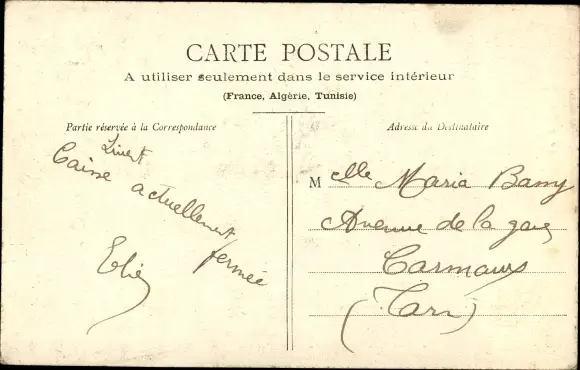 CARTE POSTALE
A utiliser seulement dans le service intérieur
(France, Algérie, Tunisie)
Partie réservée à la Correspondance
Adresse du Destinataire
actuellement
fermée
Elie
Melle Maria Bamy
Avenue de la gare
Carmaux
(Tarn)